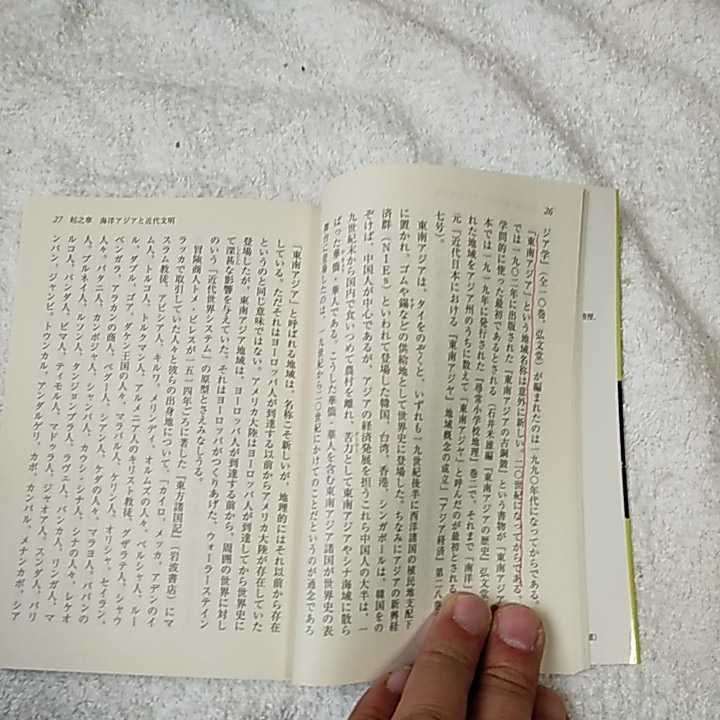 26
ジア学』(全一〇巻、弘文堂)が編まれたのは一九九〇年代になってからである。
「東南アジア」という地域名称は意外に新しい。二〇世紀になってからである。
では一九〇二年に出版された『東南アジアの古銅鼓』という書物が「東南アジア
学問的に使った最初であるとされる(石井米雄編『東南アジアの歴史』弘文堂
本では一九一九年に発行された『尋常小学校地理』巻二で、それまで「南洋」
れた地域をアジア州のうちに数えて「東南アジヤ」と呼んだのが最初とされる
元「近代日本における「東南アジヤ」地域概念の成立」『アジア経済』第二八巻
七号)。
東南アジアは、タイをのぞくと、いずれも一九世紀後半に西洋諸国の植民地支配下
に置かれ、ゴムや錫などの供給地として世界史に登場した。ちなみにアジアの新興経
済群(NIEs)といわれて登場した韓国、台湾、香港、シンガポールは、韓国をの
ぞけば、中国人が中心であるが、アジアの経済発展を担うこれら中国人の大半は、一
九世紀末から国内で食いつめて農村を離れ、苦力として東南アジアやシナ海域に散ら
ばった華僑・華人である。こうした華僑・華人を含む東南アジア諸国が世界史の表
舞台に登場したのは、一九世紀から二〇世紀にかけてのことだというのが通念であろ
27 起之章 海洋アジアと近代文明
「東南アジア」と呼ばれる地域は、名称こそ新しいが、地理的にはそれ以前から存在
している。ただそれはヨーロッパ人が到達する以前からアメリカ大陸が存在していた
というのと同じ意味ではない。アメリカ大陸はヨーロッパ人が到達してから世界史に
登場したが、東南アジア地域は、ヨーロッパ人が到達する前から、周囲の世界に対し
て深甚な影響を与えていた。それはヨーロッパがつくりあげた、ウォーラーステイン
のいう「近代世界システム」の原型とさえみなしうる。
冒険商人トメ・ピレスが一五一四年ごろに著した『東方諸国記』(岩波書店)にマ
ラッカで取引していた人々と彼らの出身地について、「カイロ、メッカ、アデンのイ
スラム教徒、アビシニア人、キルワ、メリンディ、オルムズの人々、ペルシャ人、ルー
ム人、トルコ人、トルクマン人、アルメニア人のキリスト教徒、グザラテ人、シャウ
ル、ダブル、ゴア、ダケン王国の人々、マラバル人、ケリン人、オリシャ、セイラン、
ベンガラ、アラカンの商人、ペグー人、シアン人、ケダの人々、マラヨ人、パハンの
人々、パタニ人、カンボジャ人、シャンパ人、カウシ・シナ人、シナの人々、レケオ
人、ブルネイ人、ルソン人、タンジョンプラ人、ラヴェ人、バンカ人、リンガ人、マ
ルコ人、バンダ人、ビマ人、ティモル人、マドゥラ人、ジャオア人、スンダ人、パリ
ンバン、ジャンビ、トゥンカル、アンダルゲリ、カポ、カンパル、メナンカボ、シア